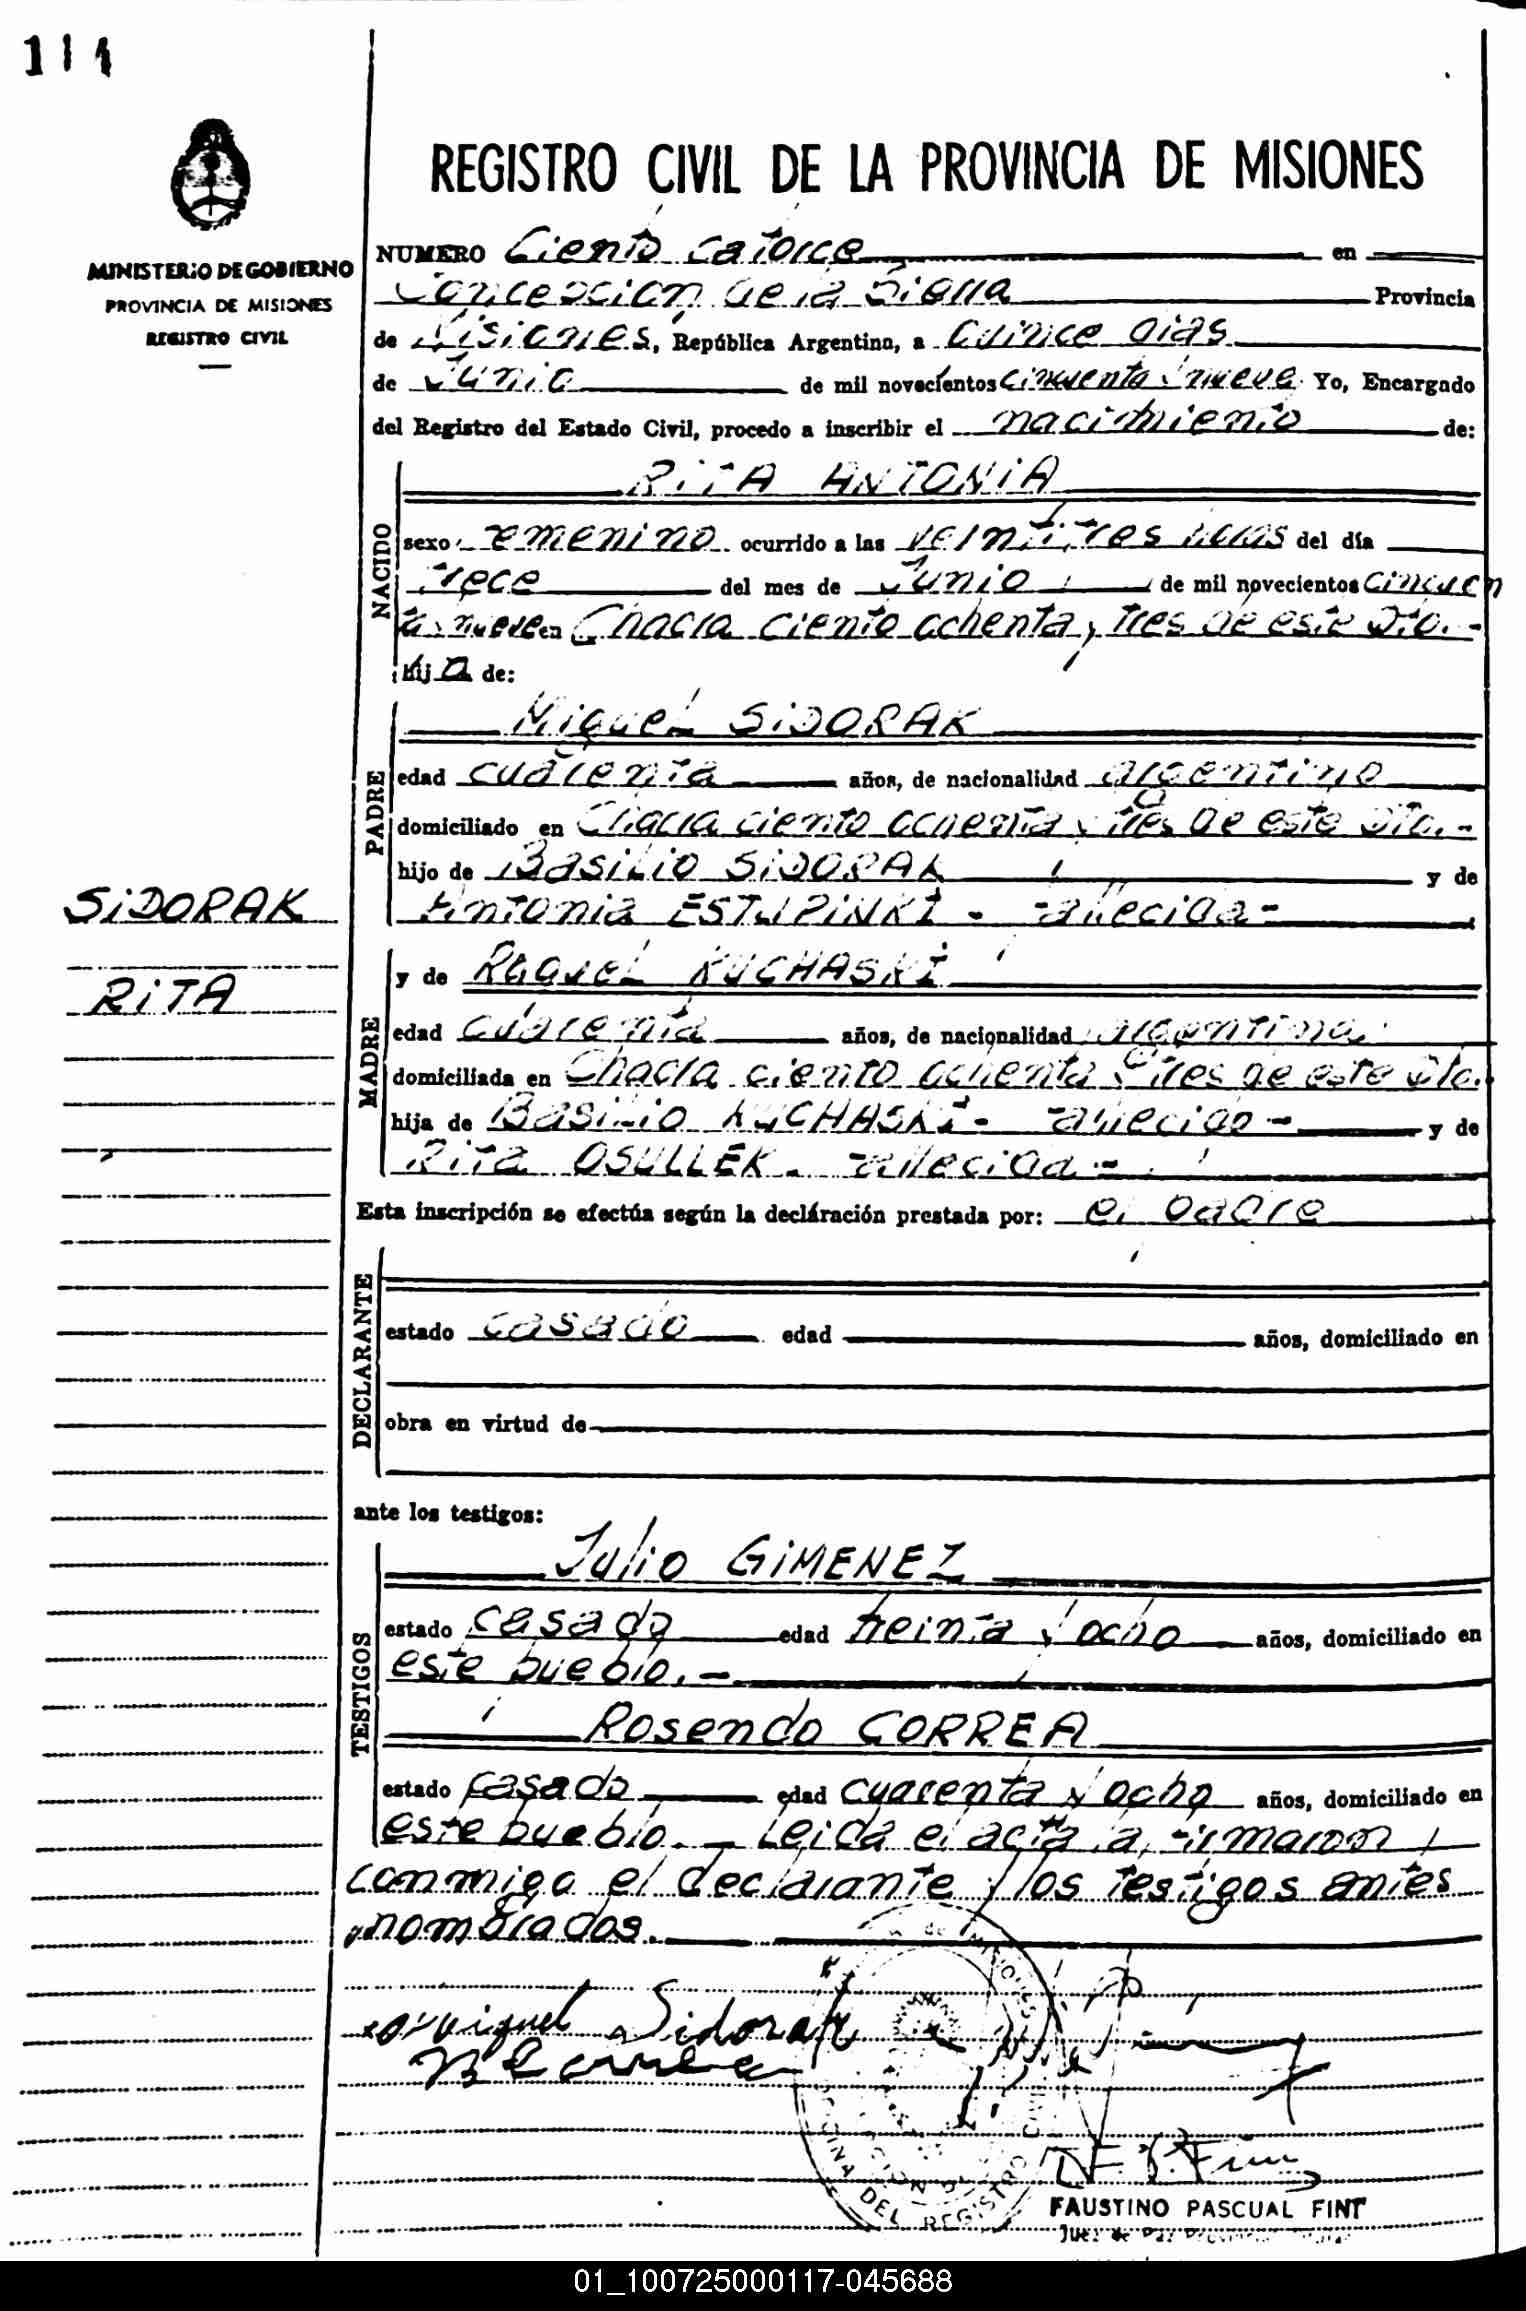 114
REGISTRO CIVIL DE LA PROVINCIA DE MISIONES
MINISTERIO DE GOBIERNO
PROVINCIA DE MISIONES
REGISTRO CIVIL
SIDORAK
RITA
NUMERO Ciento catorce en
Concepcion de la Sierra Provincia
de Misiones, República Argentina, a Quince dias
de Junio de mil novecientos cincuenta y nueve Yo, Encargado
del Registro del Estado Civil, procedo a inscribir el nacimiento de:
NACIDO
RITA ANTONIA
sexo femenino ocurrido a las veintitres horas del día
trece del mes de Junio de mil novecientos cincuen
ta y nueve en Chacra ciento ochenta y tres de este Dto.-
hija de:
PADRE
Miguel SIDORAK
edad cuarenta años, de nacionalidad argentino
domiciliado en Chacra ciento ochenta y tres de este Dto.-
hijo de Basilio SIDORAK y de
Antonia ESTUPINKI - fallecida -
MADRE
y de Raquel KUCHASKI
edad cuarenta años, de nacionalidad argentina
domiciliada en Chacra ciento ochenta y tres de este Dto.
hija de Basilio KUCHASKI - fallecido - y de
Rita OSULLEK - fallecida -
Esta inscripción se efectúa según la declaración prestada por: el padre
DECLARANTE
estado casado edad años, domiciliado en
obra en virtud de
ante los testigos:
TESTIGOS
Julio GIMENEZ
estado casado edad treinta y ocho años, domiciliado en
este pueblo.-
Rosendo CORREA
estado casado edad cuarenta y ocho años, domiciliado en
este pueblo.- Leida el acta la firmaron
conmigo el declarante y los testigos antes
nombrados.
Miguel Sidorak
R Correa
DE MISIONES
OFICINA DEL REGISTRO CIVIL
FAUSTINO PASCUAL FINT
Juez de Paz
01_100725000117-045688